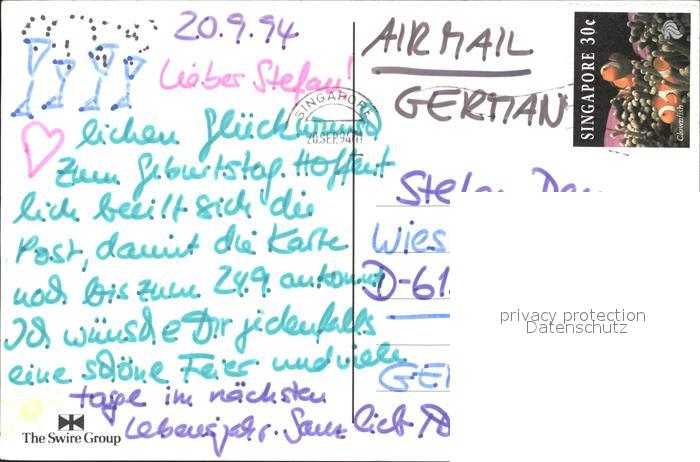 20.9.94
Lieber Stefan!
lichen Glückwunsch
zum Geburtstag. Hoffent
lich beeilt sich die
Post, damit die Karte
noch bis zum 24.9. ankommt
Ich wünsche Dir jedenfalls
eine schöne Feier und viele
tage im nächsten
Lebensjahr. Ganz lieb
The Swire Group
AIR MAIL
GERMAN
SINGAPORE
20 SEP 94
SINGAPORE 30c
Clownfish
Stefan
Wies
D-61
GE
privacy protection
Datenschutz